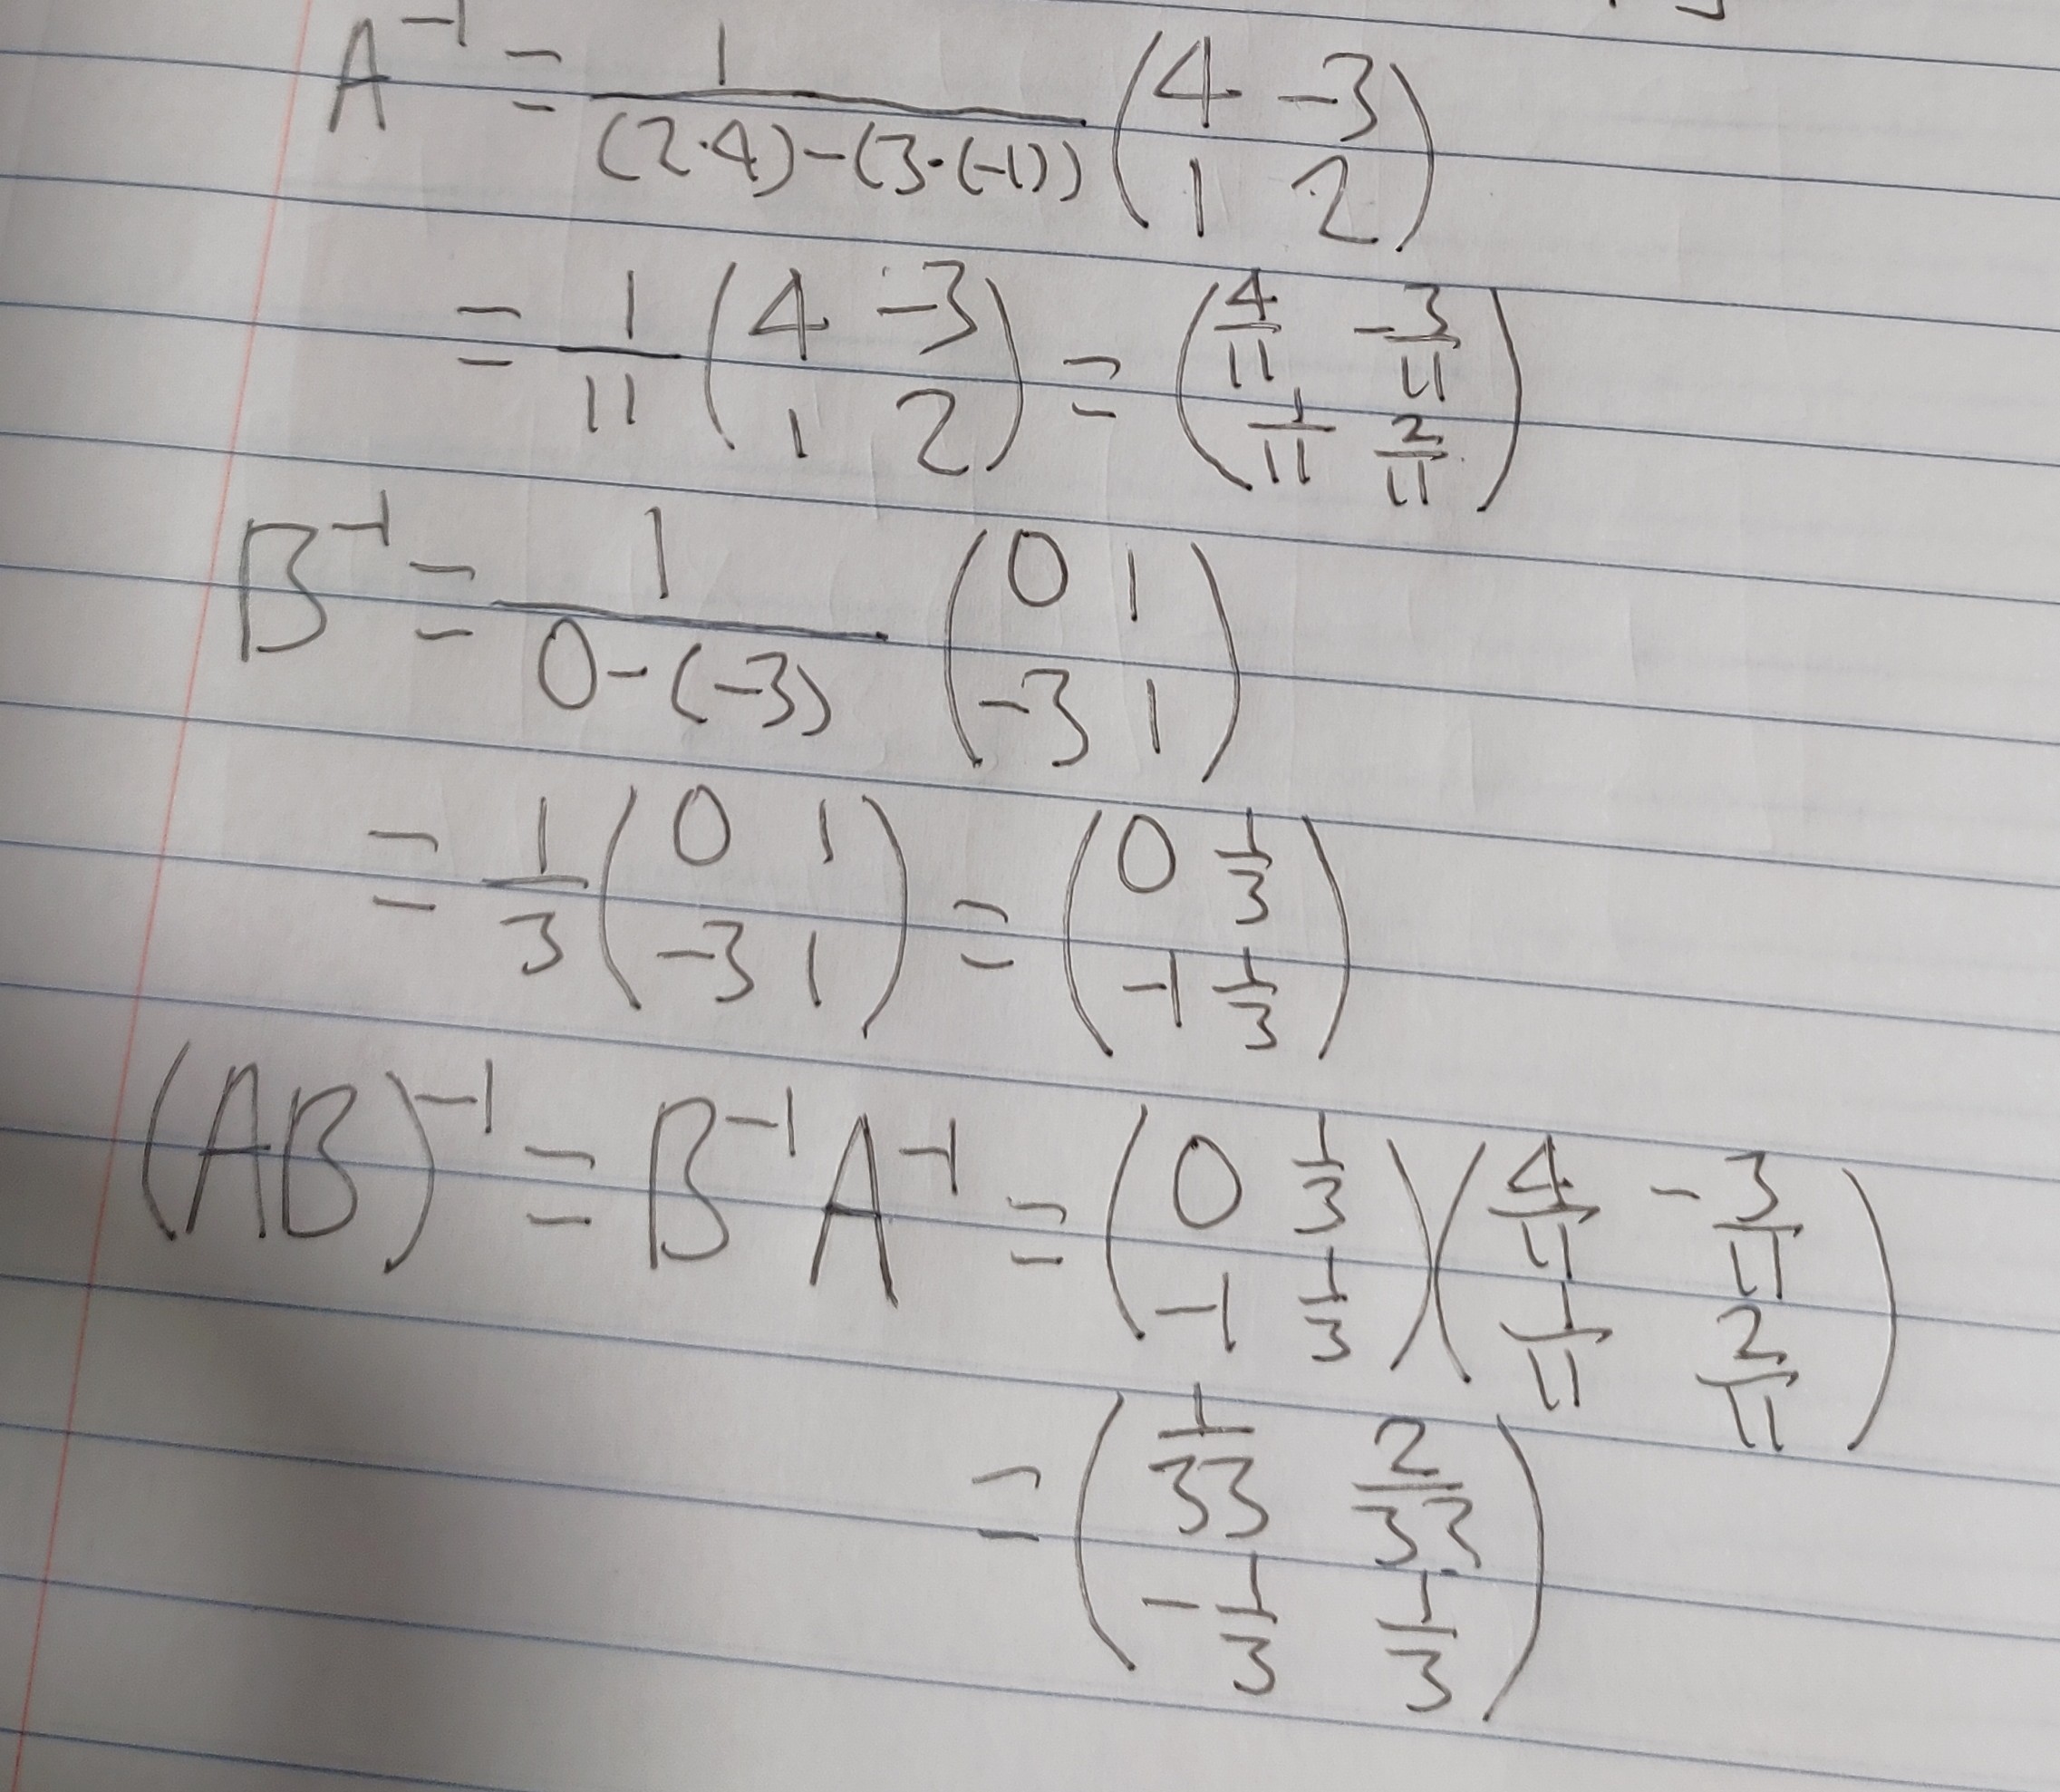 A⁻¹ = 1/((2·4)-(3·(-1))) (4 -3; 1 2)
= 1/11 (4 -3; 1 2) = (4/11 -3/11; 1/11 2/11)
B⁻¹ = 1/(0-(-3)) (0 1; -3 1)
= 1/3 (0 1; -3 1) = (0 1/3; -1 1/3)
(AB)⁻¹ = B⁻¹ A⁻¹ = (0 1/3; -1 1/3)(4/11 -3/11; 1/11 2/11)
= (1/33 2/33; -1/3 1/3)